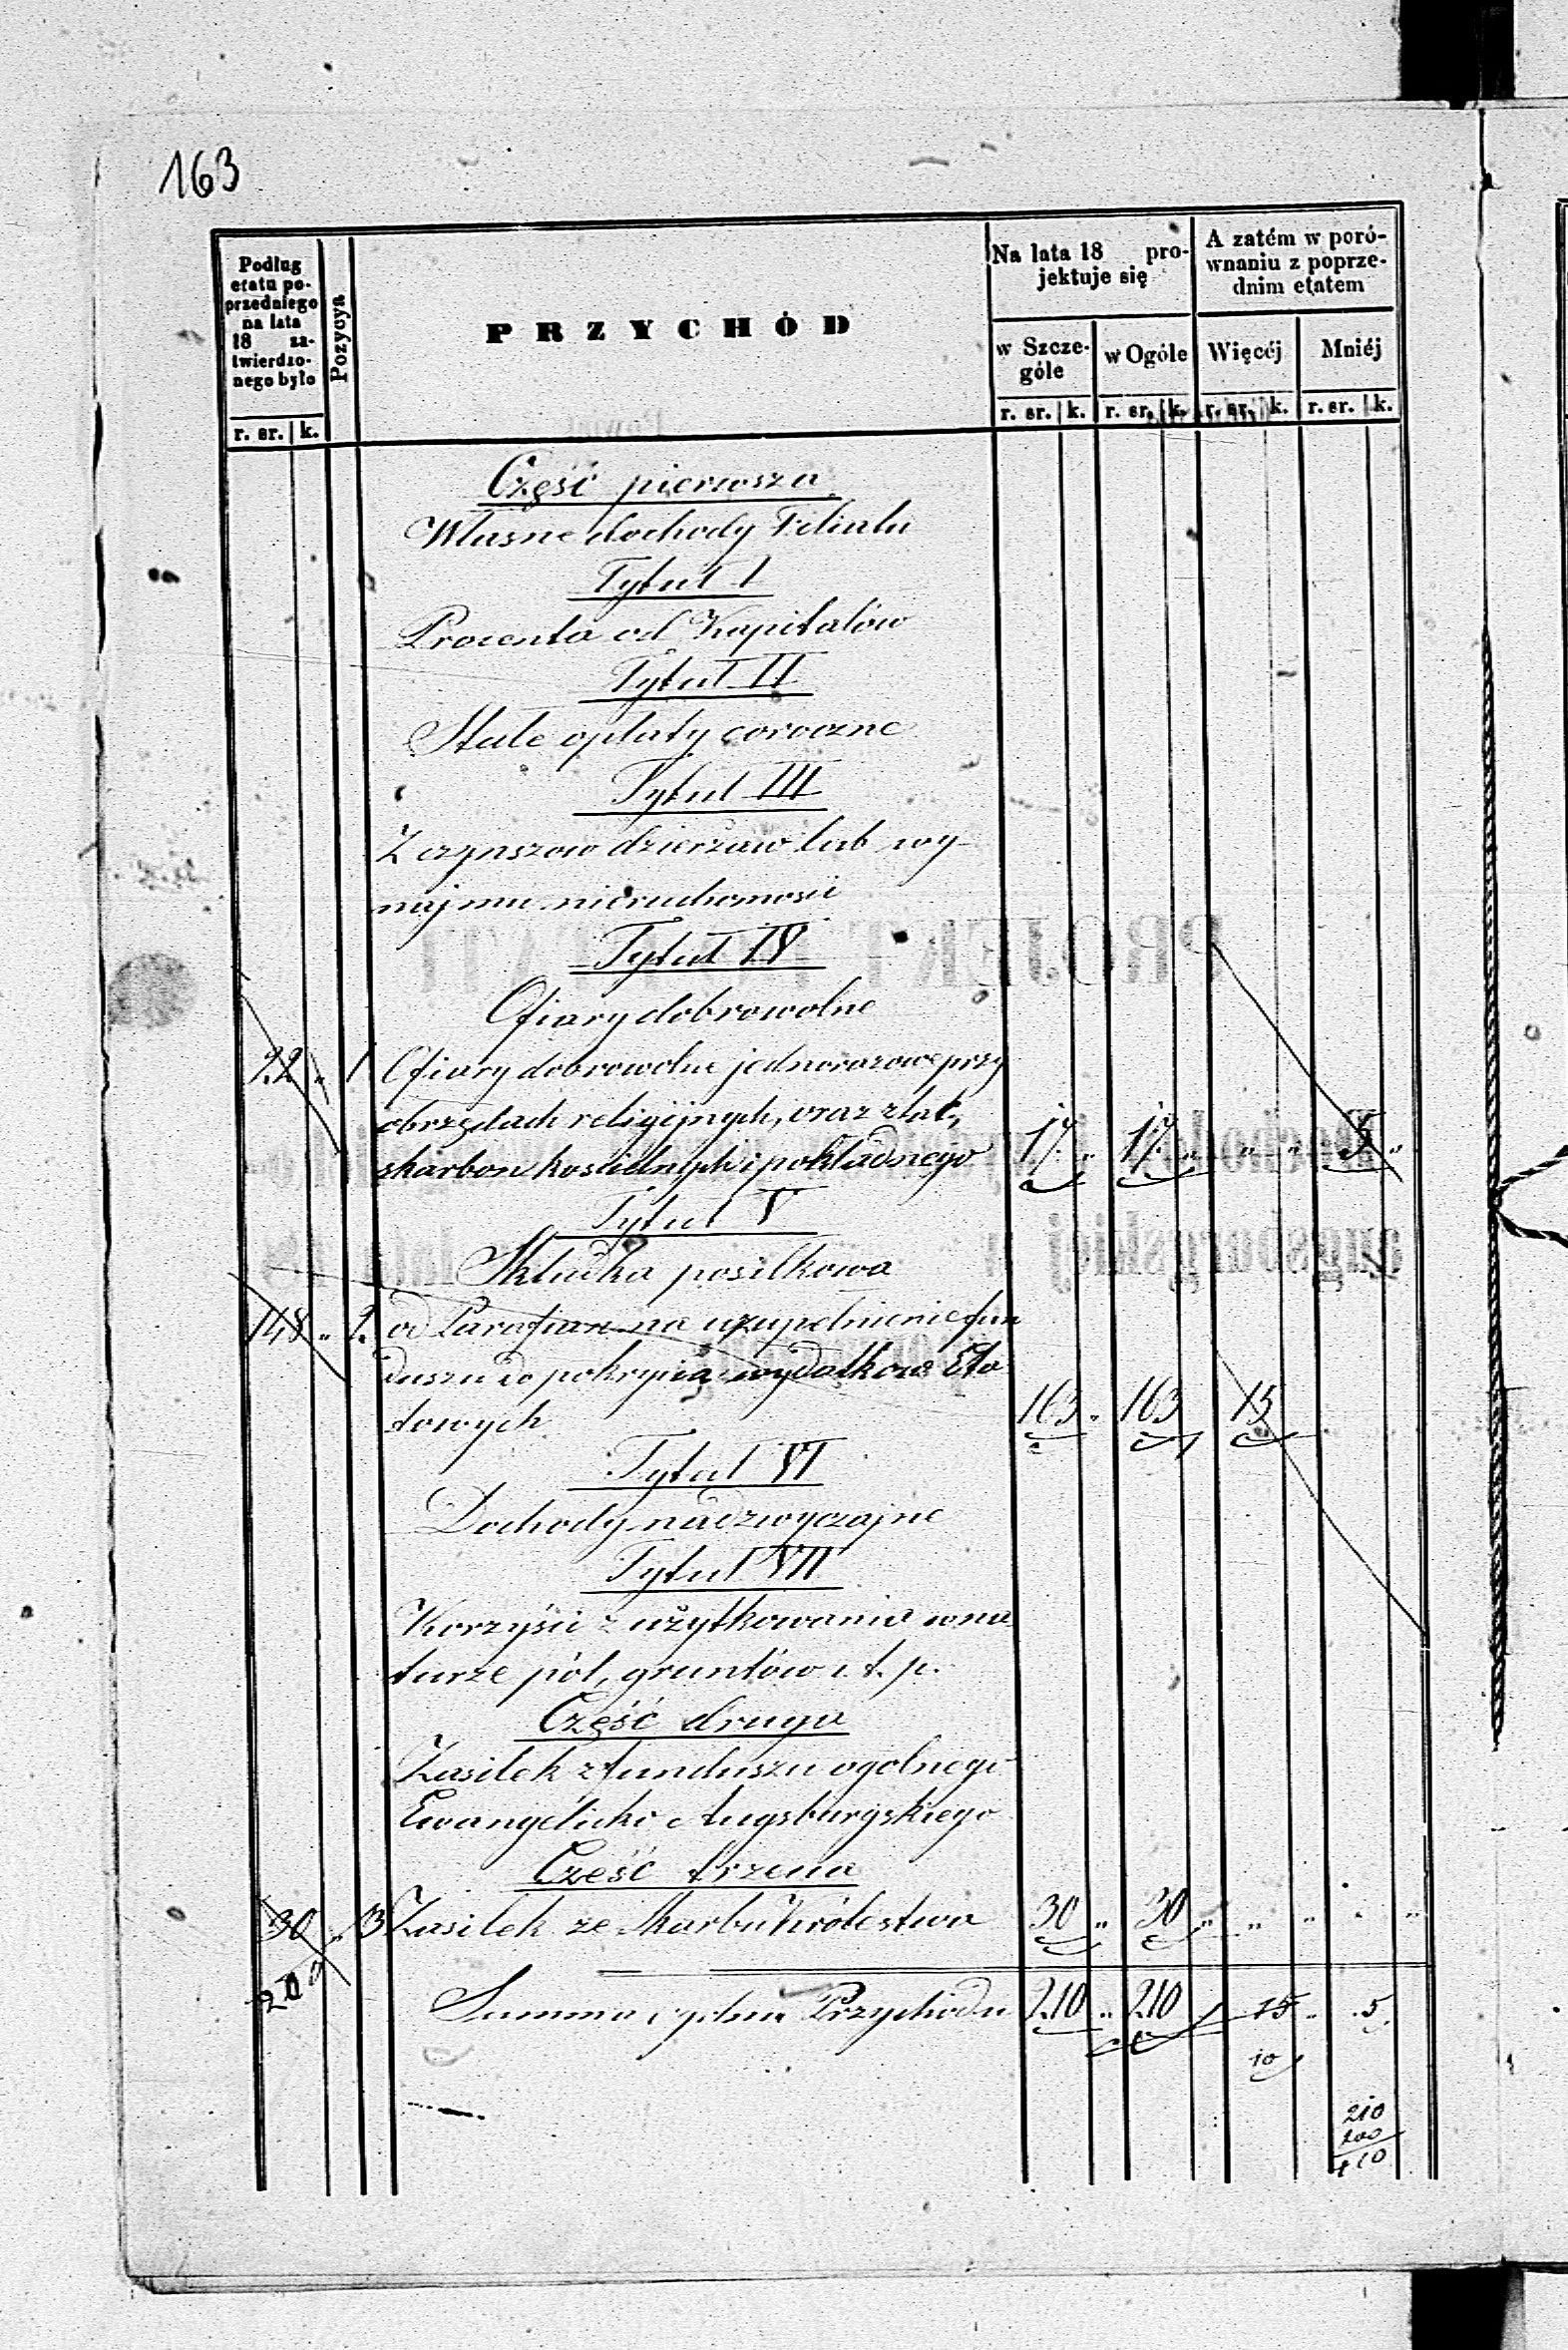 163
Podlug etatu poprzedniego na lata 18 zatwierdzonego było
Pozycya
PRZYCHÓD
Na lata 18 projektuje się
A zatém w porównaniu z poprzednim etatem
w Szczególe w Ogóle Więcéj Mniéj
r. sr. k. r. sr. k. r. sr. k. r. sr. k. r. sr. k.
Część pierwsza
Własne dochody Filialu
Tytuł I
Procenta od Kapitałów
Tytuł II
Stałe opłaty coroczne
Tytuł III
Z czynszow dzierżaw lub wy-
najmu nieruchomości
Tytuł IV
Ofiary dobrowolne
22 " 1 Ofiary dobrowolne jednorazowe przy
obrzędach religijnych, oraz z tac,
skarbon kościelnych i pokładnego 17 " 17 " " " 5 "
Tytuł V
Składka posiłkowa
148 " 2. od Parafian na uzupełnienie fun
duszu do pokrycia wydatkow Eta
towych 163 " 163 15
Tytuł VI
Dochody nadzwyczajne
Tytuł VII
Korzyści z użytkowania w na
turze pól, gruntów i. t. p.
Część druga
Zasiłek z funduszu ogolnego
Ewangelicko Augsburgskiego
Część trzecia
30 " 3 Zasiłek ze Skarbu Królestwa 30 " 30 " " " " "
200
Summa ogólna Przychodu 210 " 210 15 " 5
10
210
200
+10